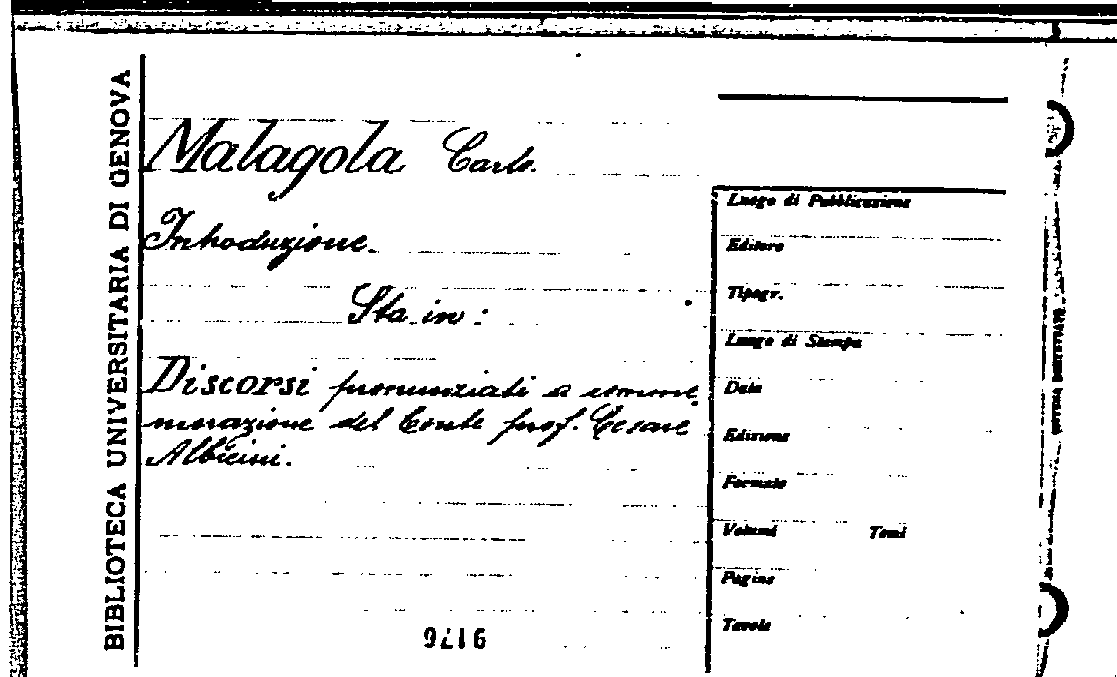 BIBLIOTECA UNIVERSITARIA DI GENOVA
Malagola Carlo.
Introduzione.
Sta in:
Discorsi pronunziati a comme
morazione del Conte prof. Cesare
Albicini.
9176
Luogo di Pubblicazione
Editore
Tipogr.
Luogo di Stampa
Data
Edizione
Formato
Volumi Tomi
Pagine
Tavole